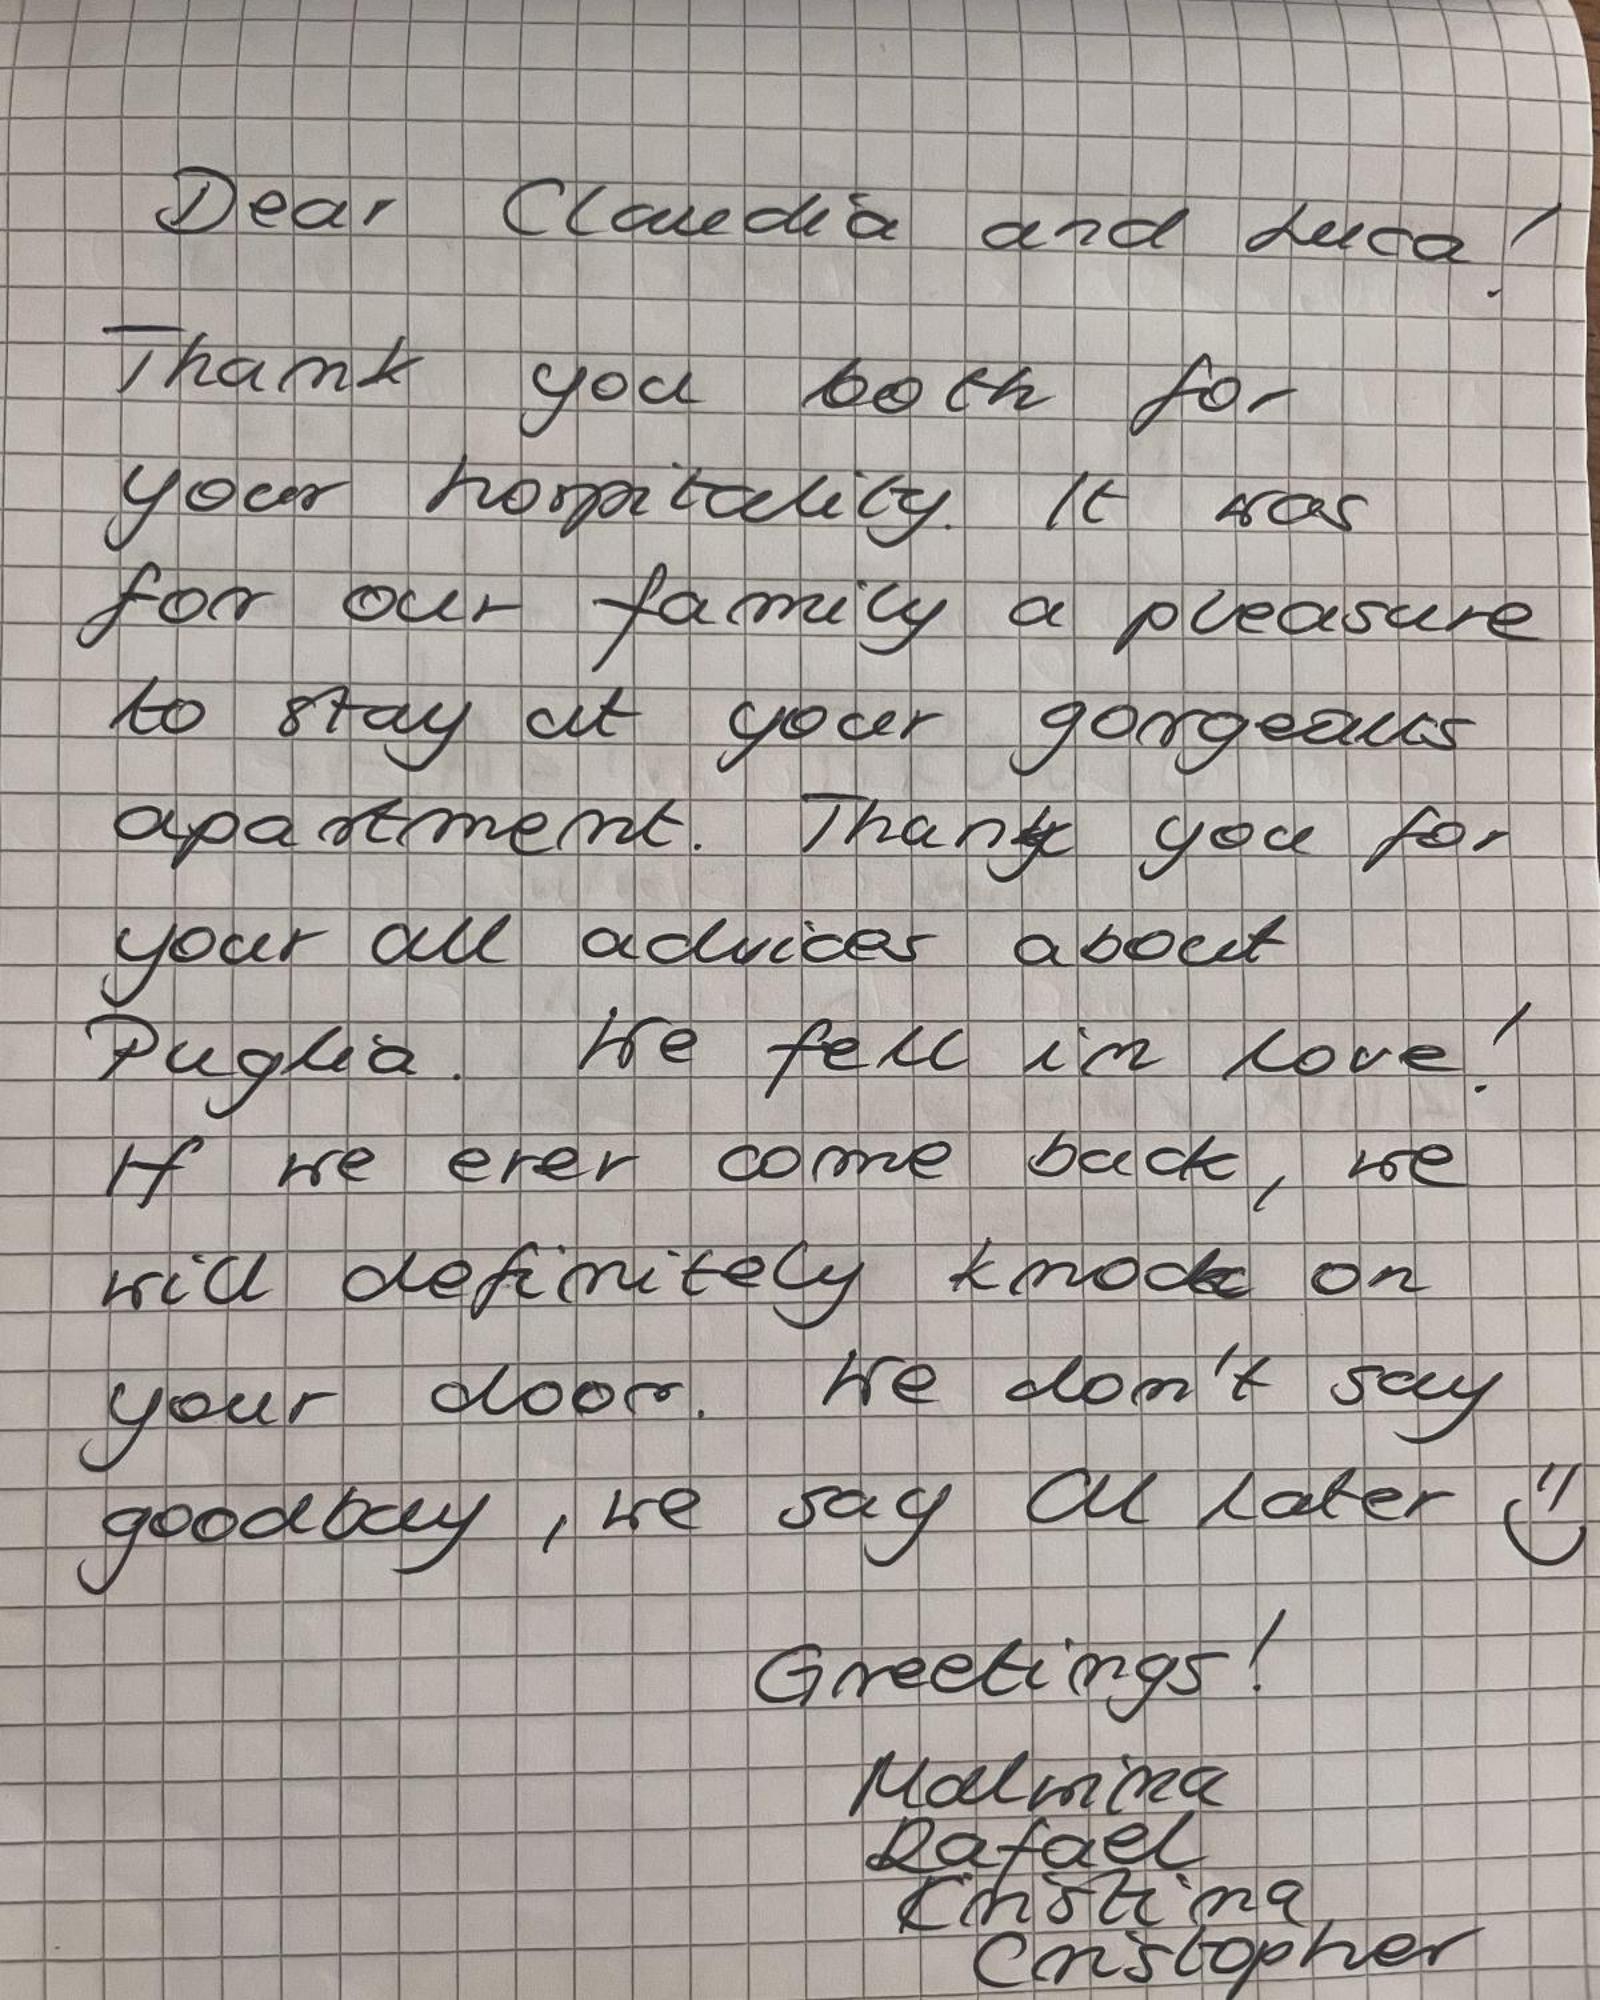 Dear Claudia and Luca!
Thank you both for
your hospitality. It was
for our family a pleasure
to stay at your gorgeous
apartment. Thank you for
your all advices about
Puglia. We fell in love!
If we ever come back, we
will definitely knock on
your door. We don't say
goodbay, we say CU later
Greetings!
Malwina
Rafael
Kristina
Cristopher